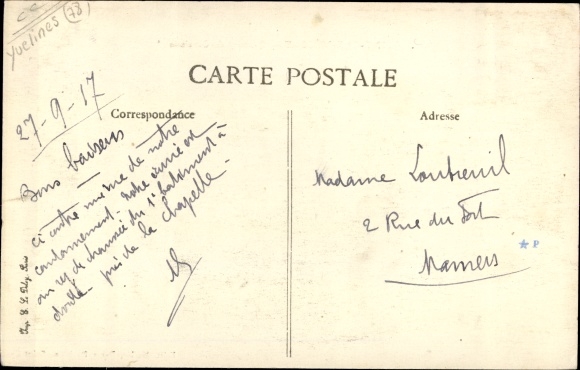 ce
Yvelines (78)
CARTE POSTALE
27-9-17
Correspondance
Adresse
Bons baisers
ci contre même de notre
cantonnement. Notre est
au rez de chaussée du 1er batiment à
droite - près de la chapelle -
Madame Loutreuil
2 Rue du Fort
Mamers
* P
Imp.